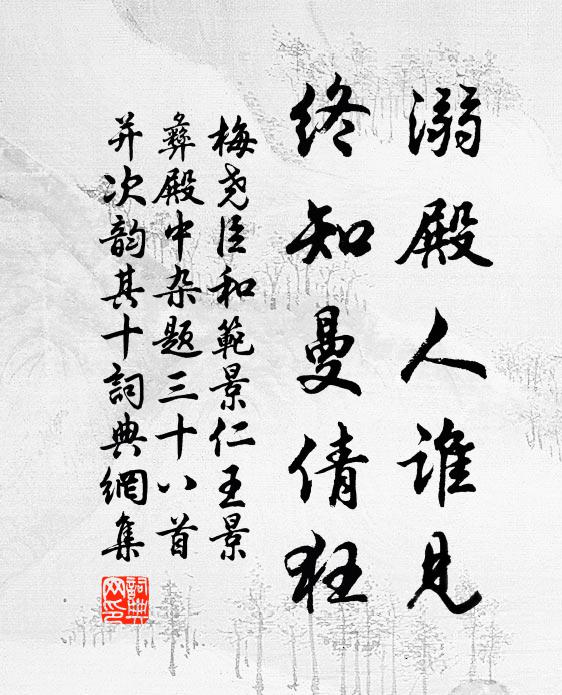 溺殿人谁见
终知曼倩狂
梅尧臣和範景仁王景
彝殿中杂题三十八首
并次韵其十詞典網集
詞典